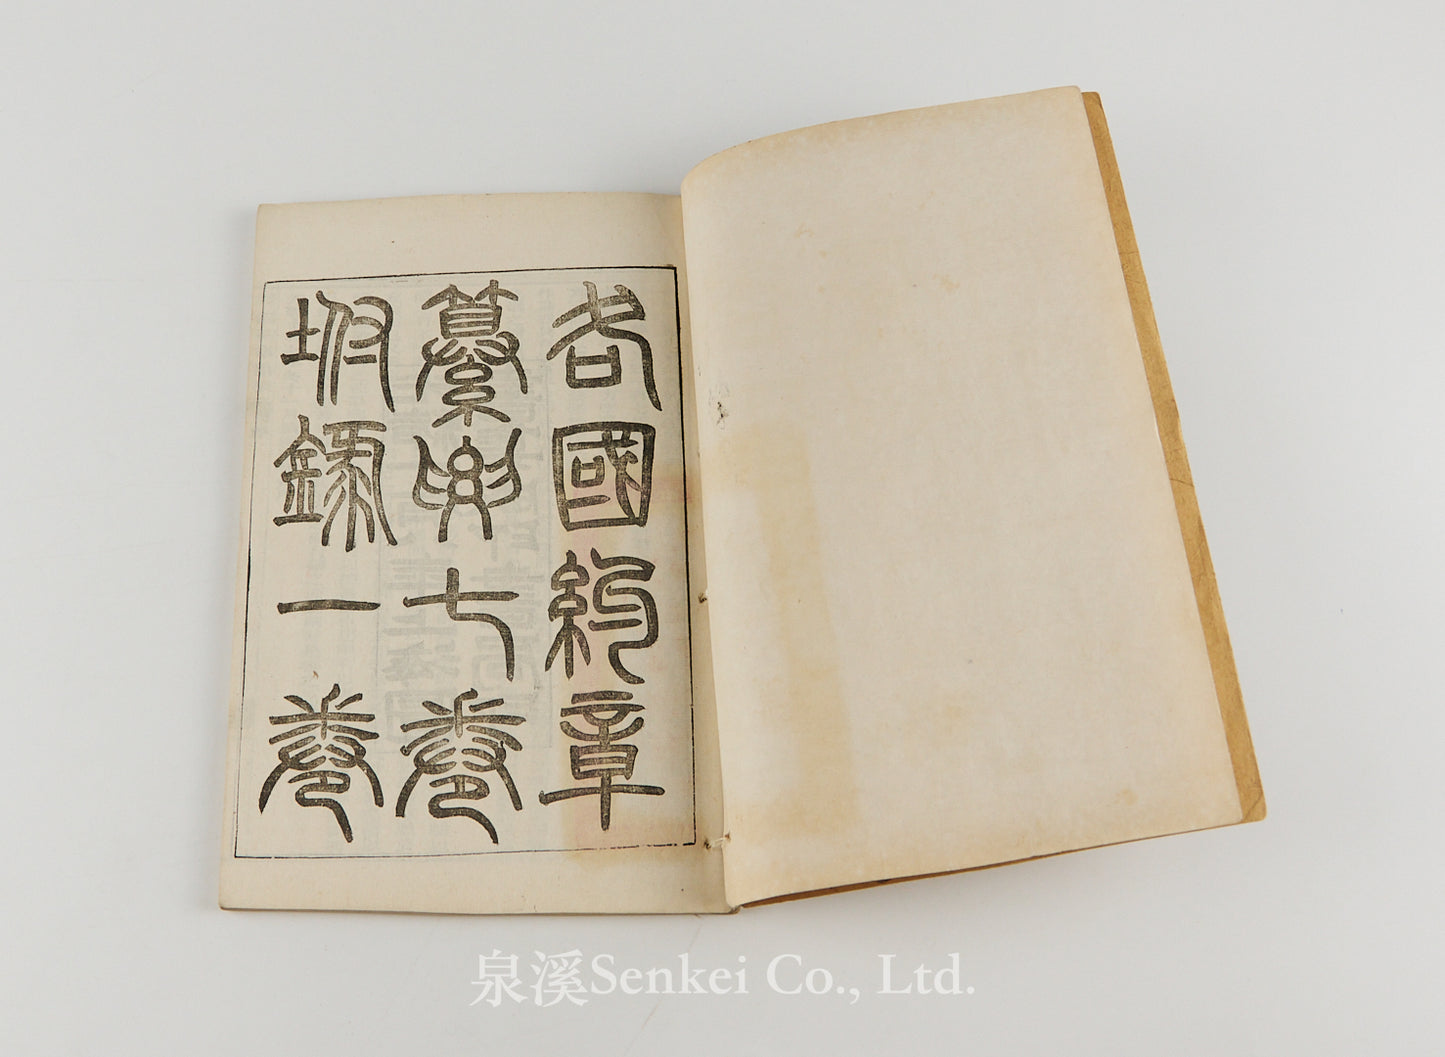 各國約章
纂要七卷
坿錄一卷
泉溪Senkei Co., Ltd.